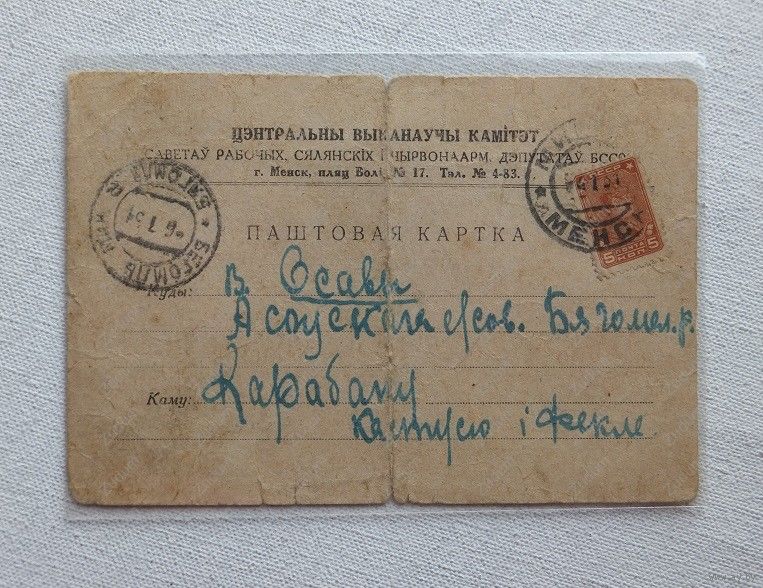 ЦЭНТРАЛЬНЫ ВЫКАНАУЧЫ КАМІТЭТ
САВЕТАЎ РАБОЧЫХ, СЯЛЯНСКІХ І ЧЫРВОНААРМ. ДЭПУТАТАЎ БССР
г. Менск, пляц Волі № 17. Тэл. № 4-83.
ПАШТОВАЯ КАРТКА
МЕНСК
5 КОП 5
БЕГОМЛЬ
6 7 31
Куды: в. Осавы
Асоўскага с/сов. Бягомл. р.
Каму: Карабану
Кастусю і Фекле